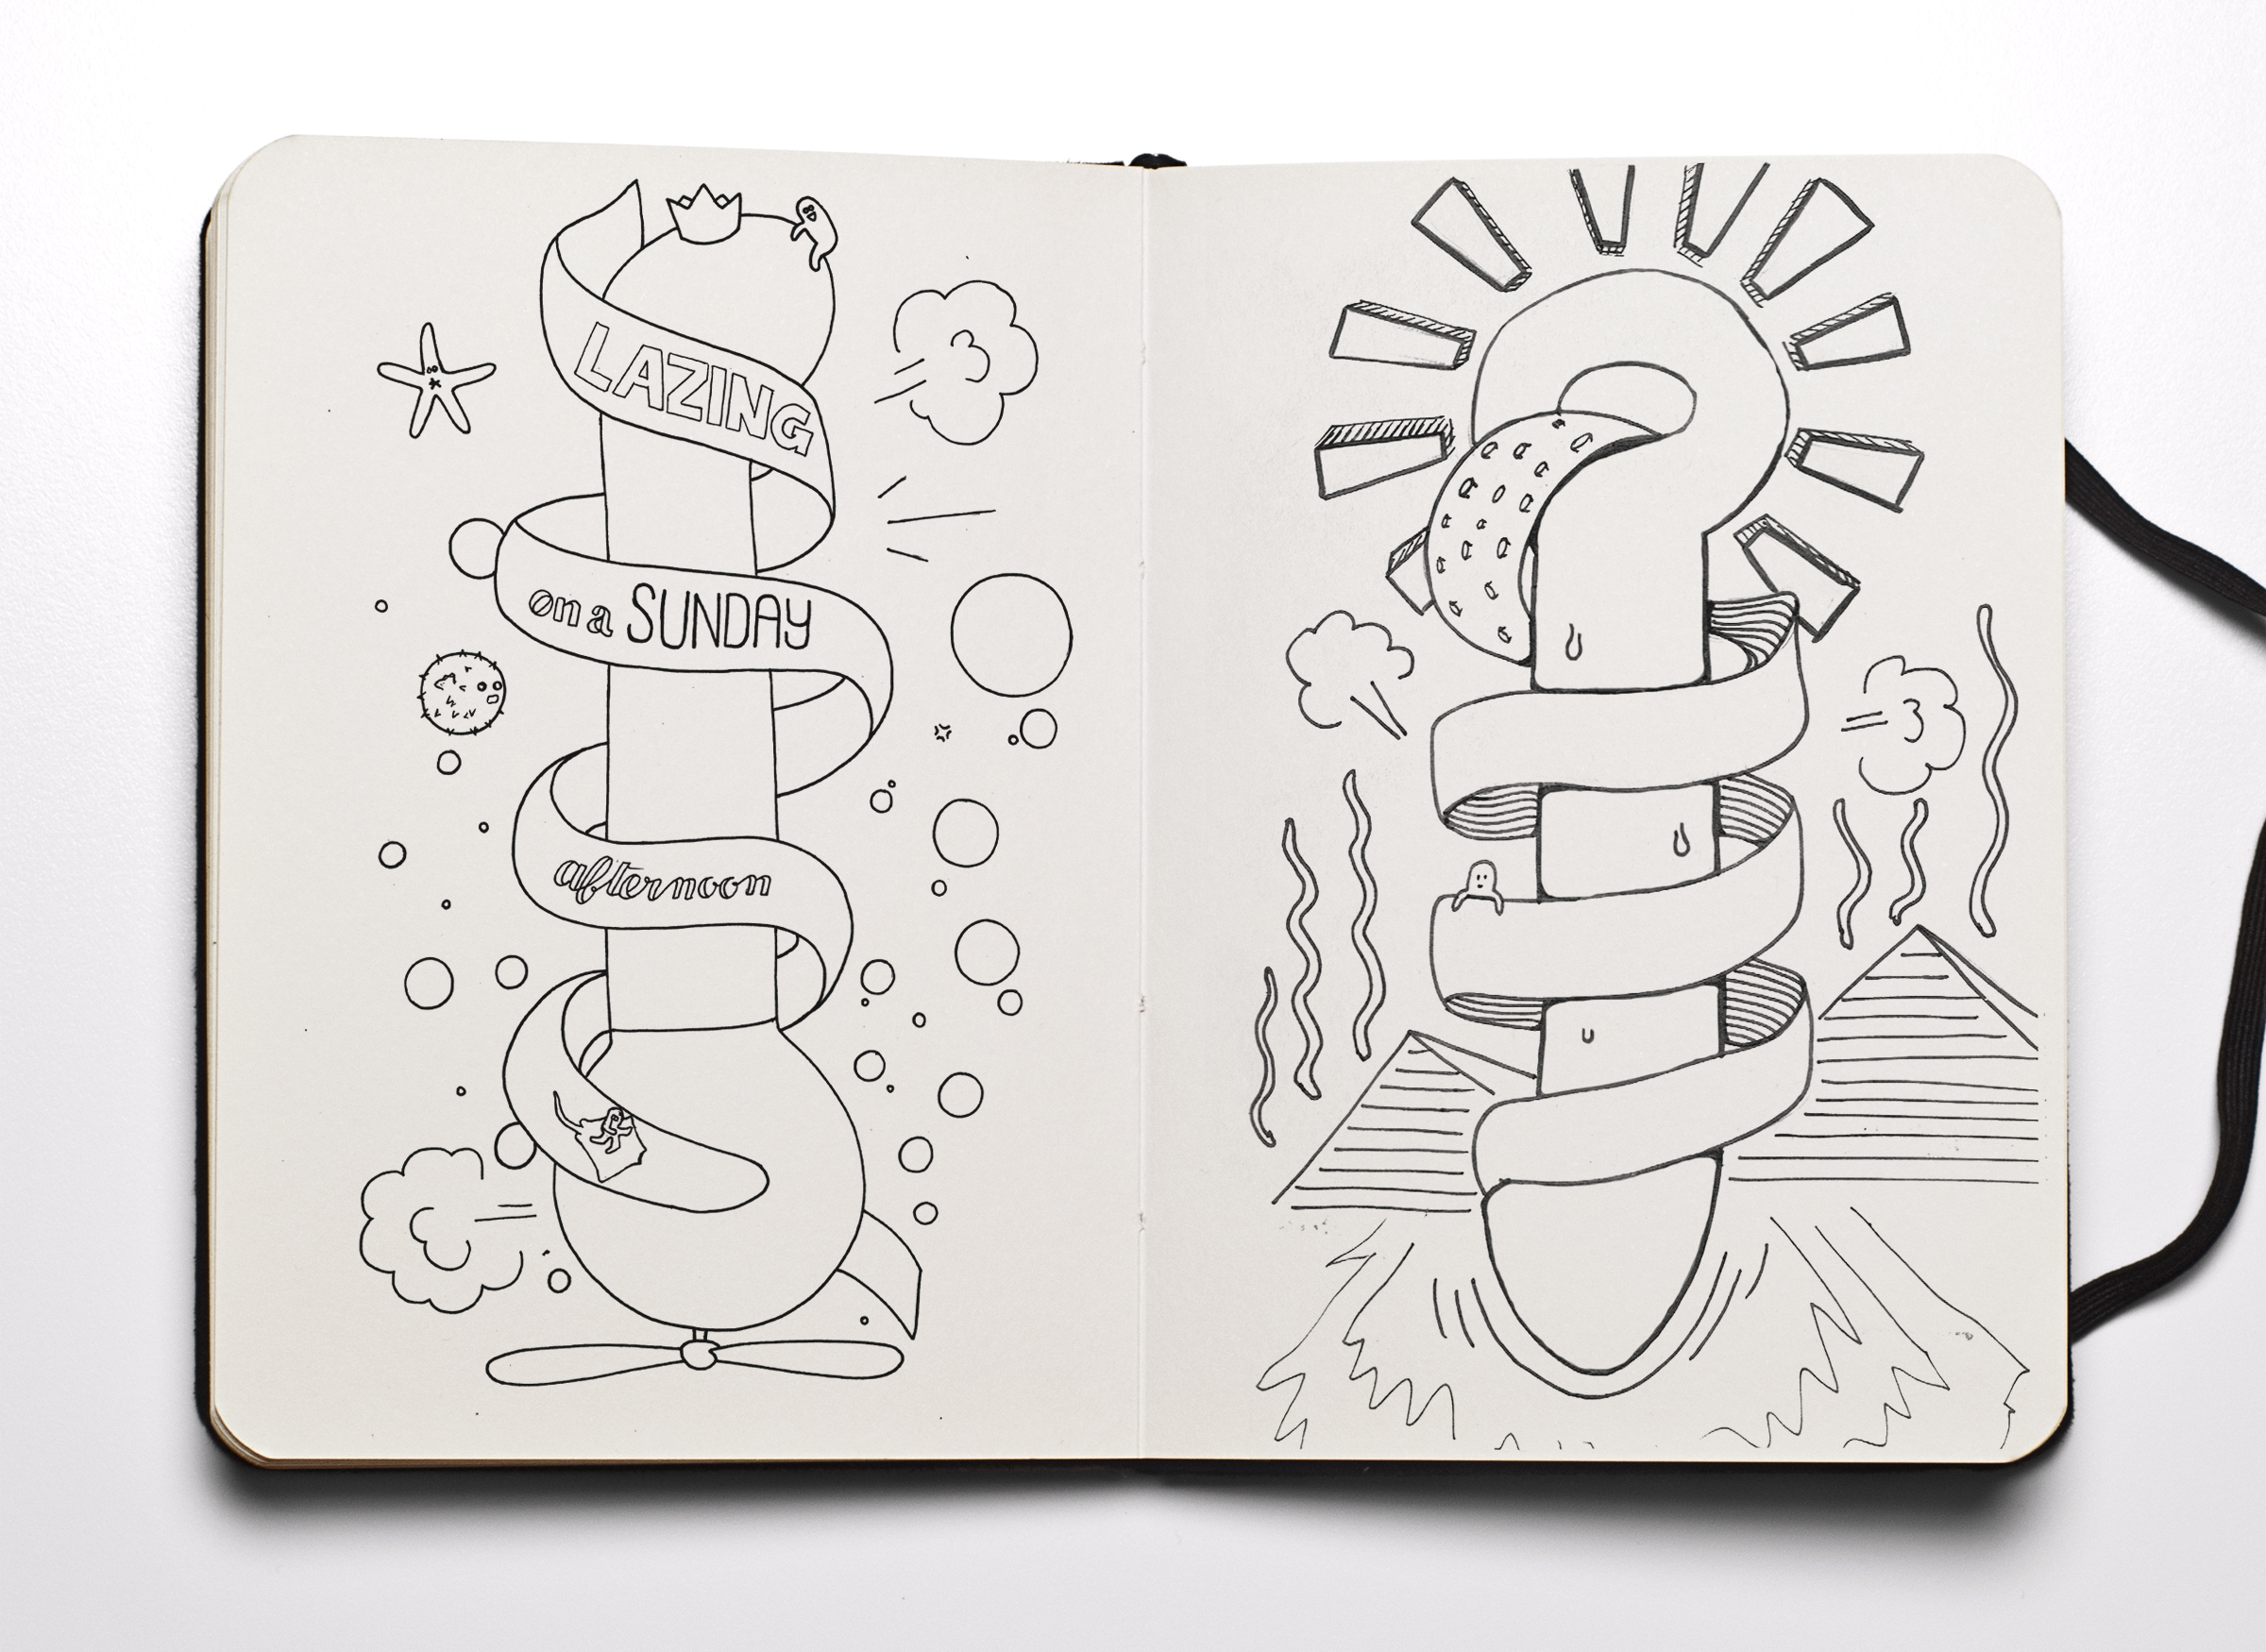 LAZING
on a SUNDAY
afternoon